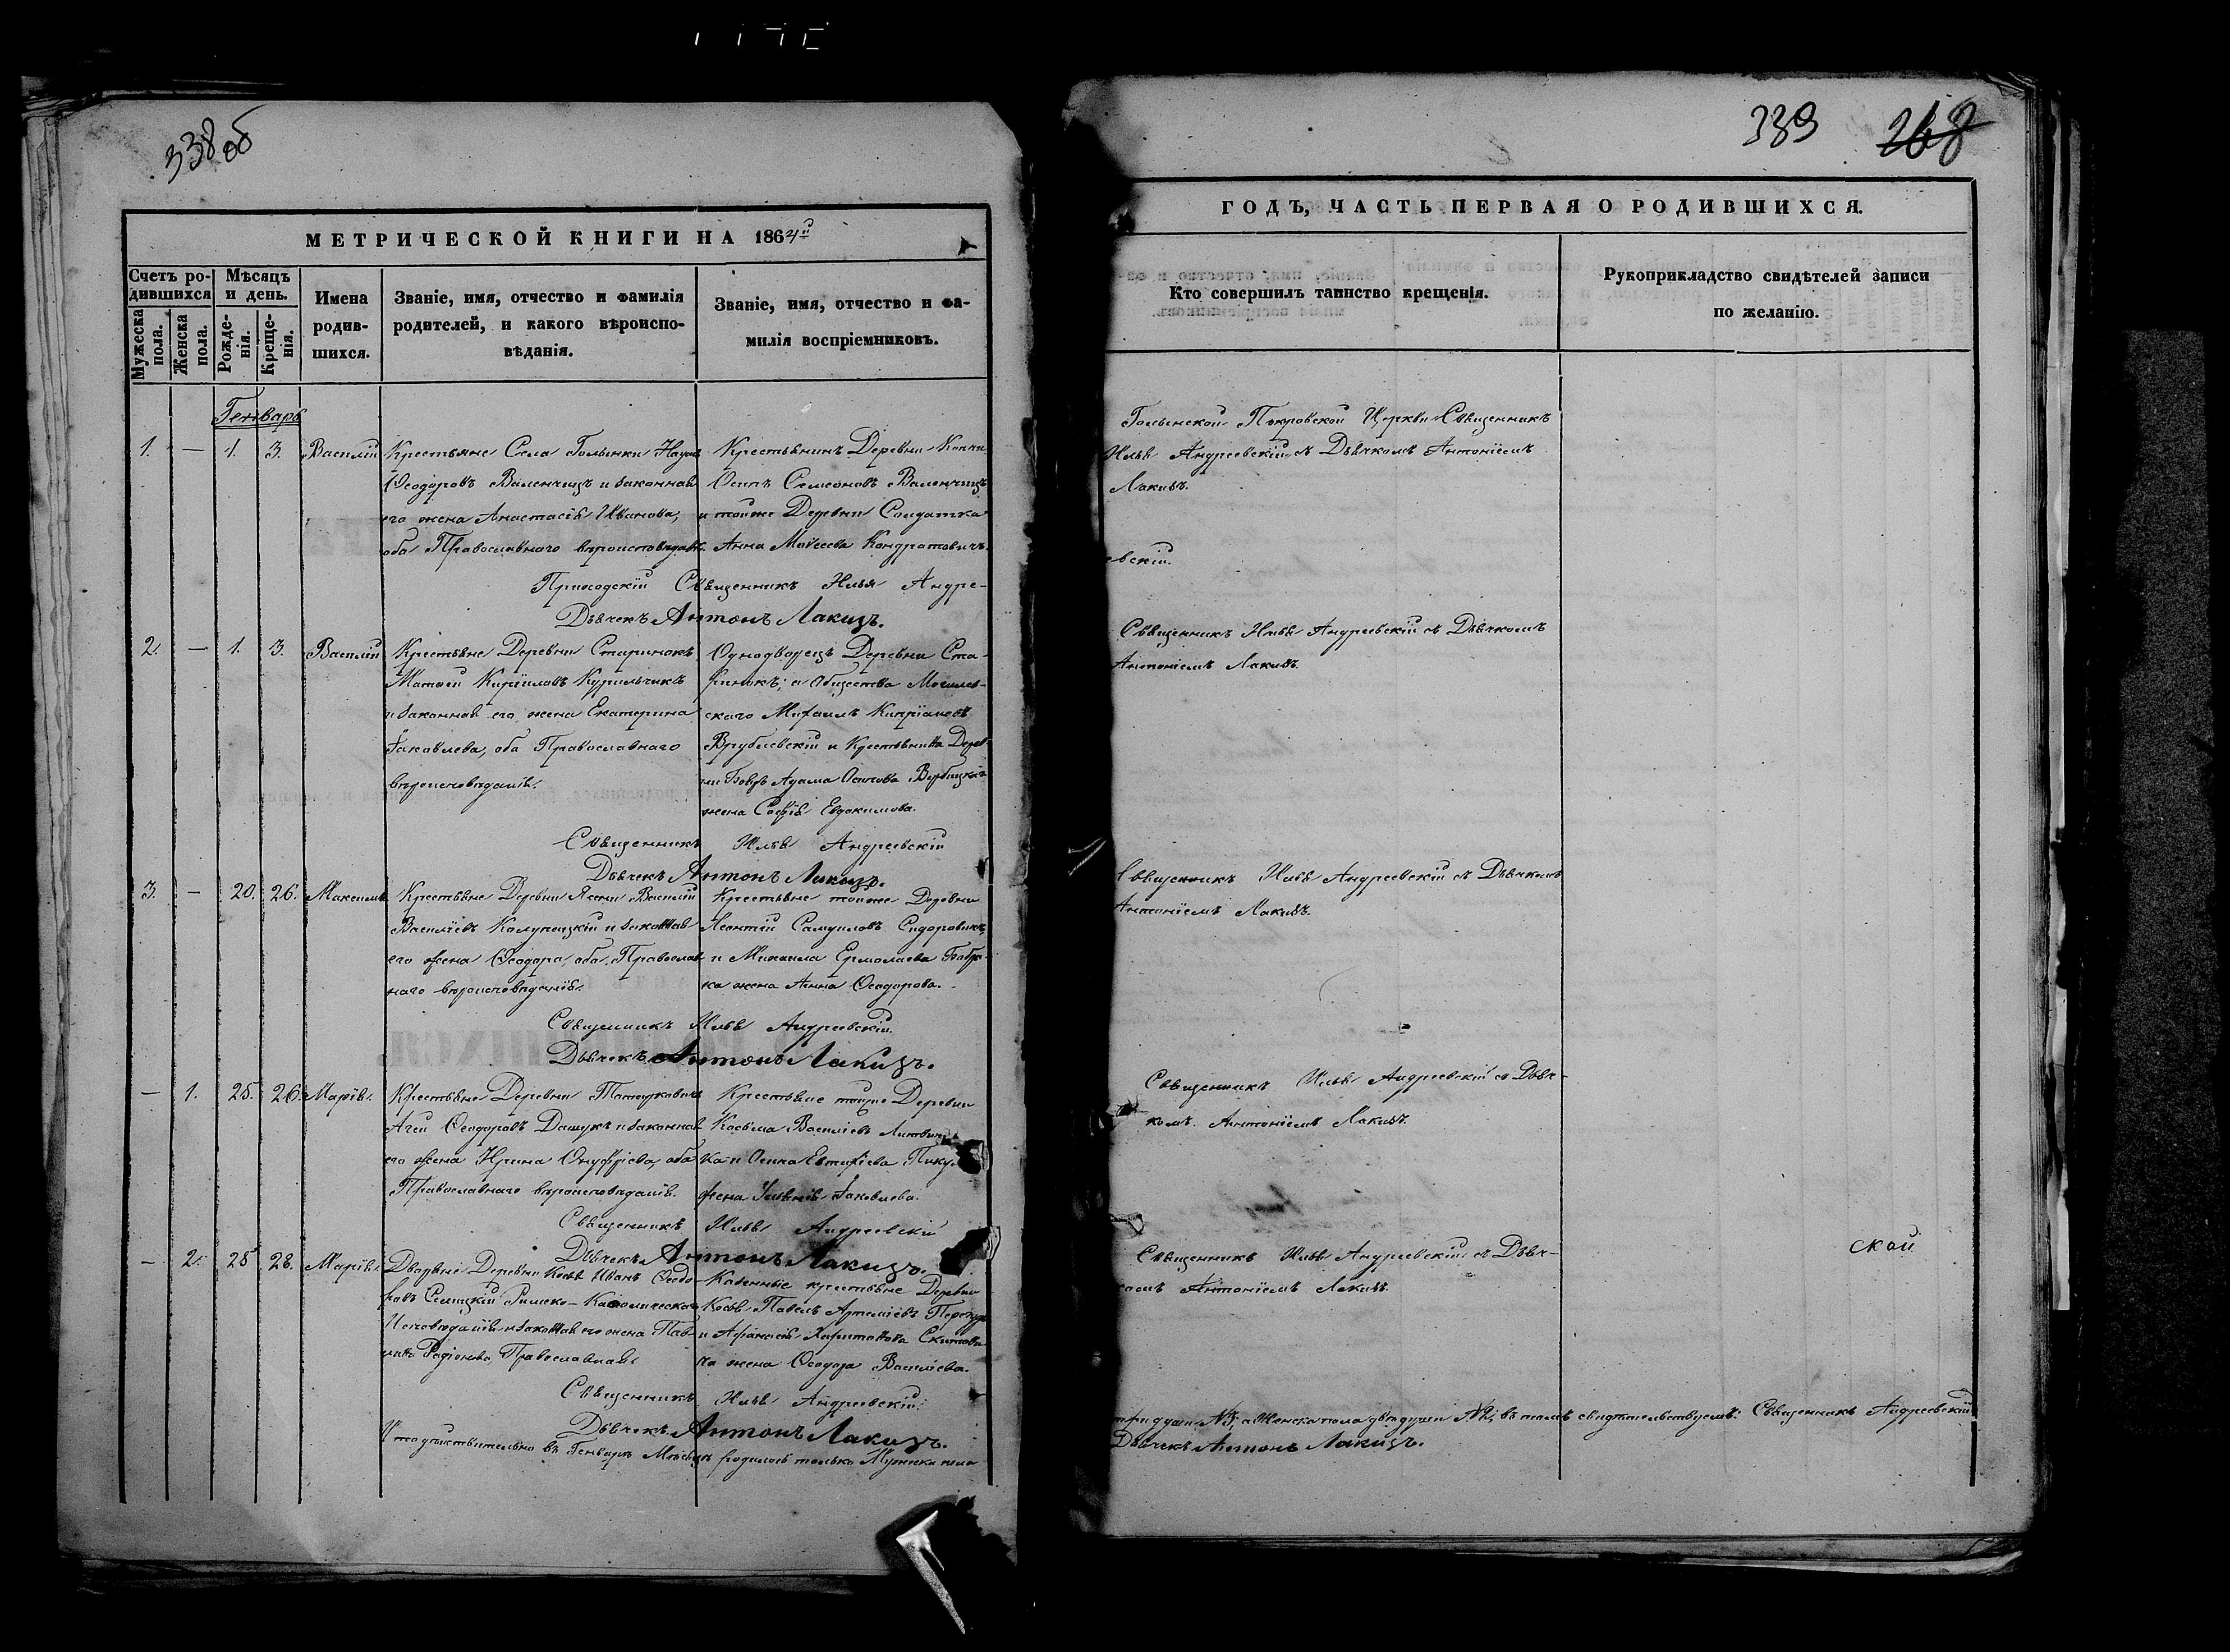 338 об
МЕТРИЧЕСКОЙ КНИГИ НА 1864й
Счетъ ро-
дившихся
Мужеска
пола.
Женска
пола.
Мѣсяцъ
и день.
Рожде-
нія.
Креще-
нія.
Имена
родив-
шихся.
Званіе, имя, отчество и фамилія
родителей, и какого вѣроиспо-
вѣданія.
Званіе, имя, отчество и фа-
милія воспріемниковъ.
Генварь
1. — 1. 3. Василій
Крестьяне Села Голынки
Ѳеодоровъ Валенчицъ и законная
его жена Анастасія Иванова,
оба Православнаго
Крестьянинъ Деревни
Осипъ Семеоновъ Валенчицъ
и тойже Деревни Солдатка
Анна Моѵсеева Кондратовичъ.
Приходскій Священникъ Илья Андре-
Дьячекъ Антонъ Лакизъ.
2. — 1. 3. Василій
Крестьяне Деревни Старинокъ
Матѳей Кириловъ Курильчикъ
и законная его жена Екатерина
Іаковлева, оба Православнаго
вѣроисповѣданія.
Однодворецъ Деревни Ста-
ринокъ; Общества Могилев-
скаго Михаилъ Кипріановъ
Врублевскій и Крестьянина Дерев-
ни Адама Осипова
жена Софія Евдокимова.
Священникъ Илья Андреевскій
Дьячекъ Антонъ Лакизъ.
3. — 20. 26. Максимъ
Крестьяне Деревни Ясени Василій
Василіевъ и законная
его жена Ѳеодора, оба Православ-
наго вѣроисповѣданія.
Крестьяне тойже Деревни
Леонтій Самуиловъ Сидоровичъ,
и Михаила Ермолаева Бобри-
ка жена Анна Ѳеодорова.
Священникъ Илья Андреевскій.
Дьячекъ Антонъ Лакизъ.
— 1. 25. 26. Марія.
Крестьяне Деревни
Агей Ѳеодоровъ Дашукъ и законная
его жена Ирина Онуфріева, оба
Православнаго вѣроисповѣданія.
Крестьяне тойже Деревни
Косьма Василіевъ
и Осипа Евтихіева
жена Іаковлева.
Священникъ Илья Андреевскій
Дьячекъ Антонъ Лакизъ.
— 2. 25 28. Марія.
Дворяне Деревни Иванъ Ѳеодо-
ровъ Римско-Католическаго
Исповѣданія и законная его жена
Родіонова, Православная.
Казенные крестьяне Деревни
Павелъ Артеміевъ
и Афанасія Харитонова
жена Ѳеодора Василіева.
Священникъ Илья Андреевскій.
Дьячекъ Антонъ Лакизъ.
Что дѣйствительно въ Генварѣ Мѣсяцѣ родилось только Мужеска пола
339 268
ГОДЪ, ЧАСТЬ ПЕРВАЯ О РОДИВШИХСЯ.
Кто совершилъ таинство крещенія.
Рукоприкладство свидѣтелей записи
по желанію.
Голынской Покровской Церкви Священникъ
Илья Андреевскій съ Дьячкомъ Антоніемъ
Лакизъ.
евскій.
Священникъ Илья Андреевскій съ Дьячкомъ
Антоніемъ Лакизъ.
Священникъ Илья Андреевскій съ Дьячкомъ
Антоніемъ Лакизъ.
Священникъ Илья Андреевскій съ Дьяч-
комъ Антоніемъ Лакизъ.
Священникъ Илья Андреевскій съ Дьяч-
комъ Антоніемъ Лакизъ.
ской
три души №3, а Женска пола двѣ души №2, въ томъ свидѣтельствуемъ: Священникъ Андреевскій
Дьячекъ Антонъ Лакизъ.